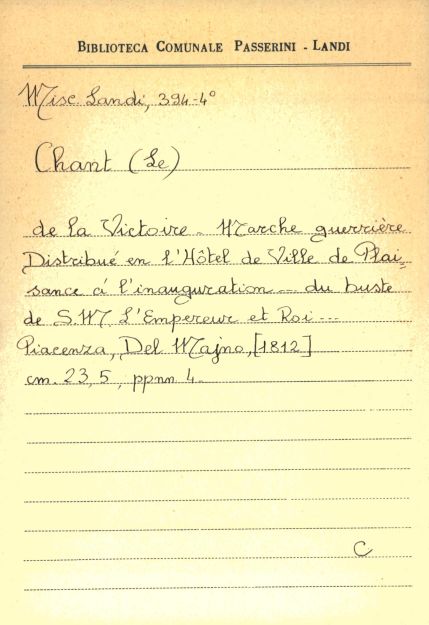 BIBLIOTECA COMUNALE PASSERINI - LANDI
Misc. Landi, 394-4°
Chant (Le)
de la Victoire - Marche guerrière
Distribué en l'Hôtel de Ville de Plai-
sance à l'inauguration ... du buste
de S.M L'Empereur et Roi ...
Piacenza, Del Majno, [1812]
cm. 23,5, ppnn 4.
C